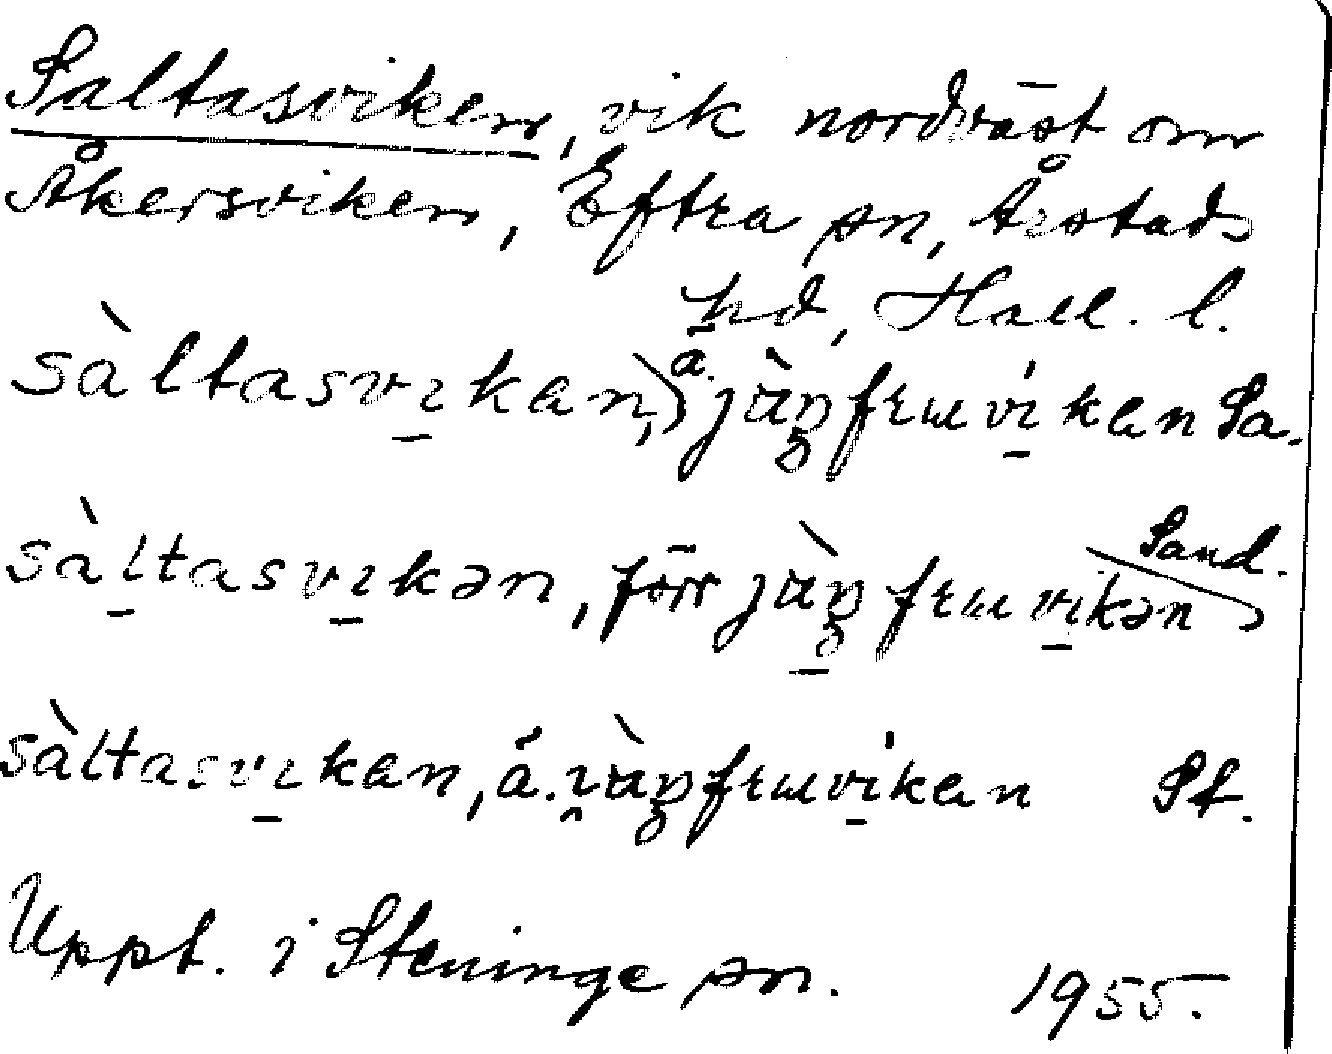 Saltasviken, vik nordväst om
Åkersviken, Eftra sn, Årstads
hd, Hall. l.
sàltasvıkan, ä. jùŋfrɯvikan Sa.
sàltasvıkən, förr jùŋfrɯvikən Sand.
sàltasvıkan, ä. jùŋfrɯvikan St.
Uppt. i Steninge sn. 1955.